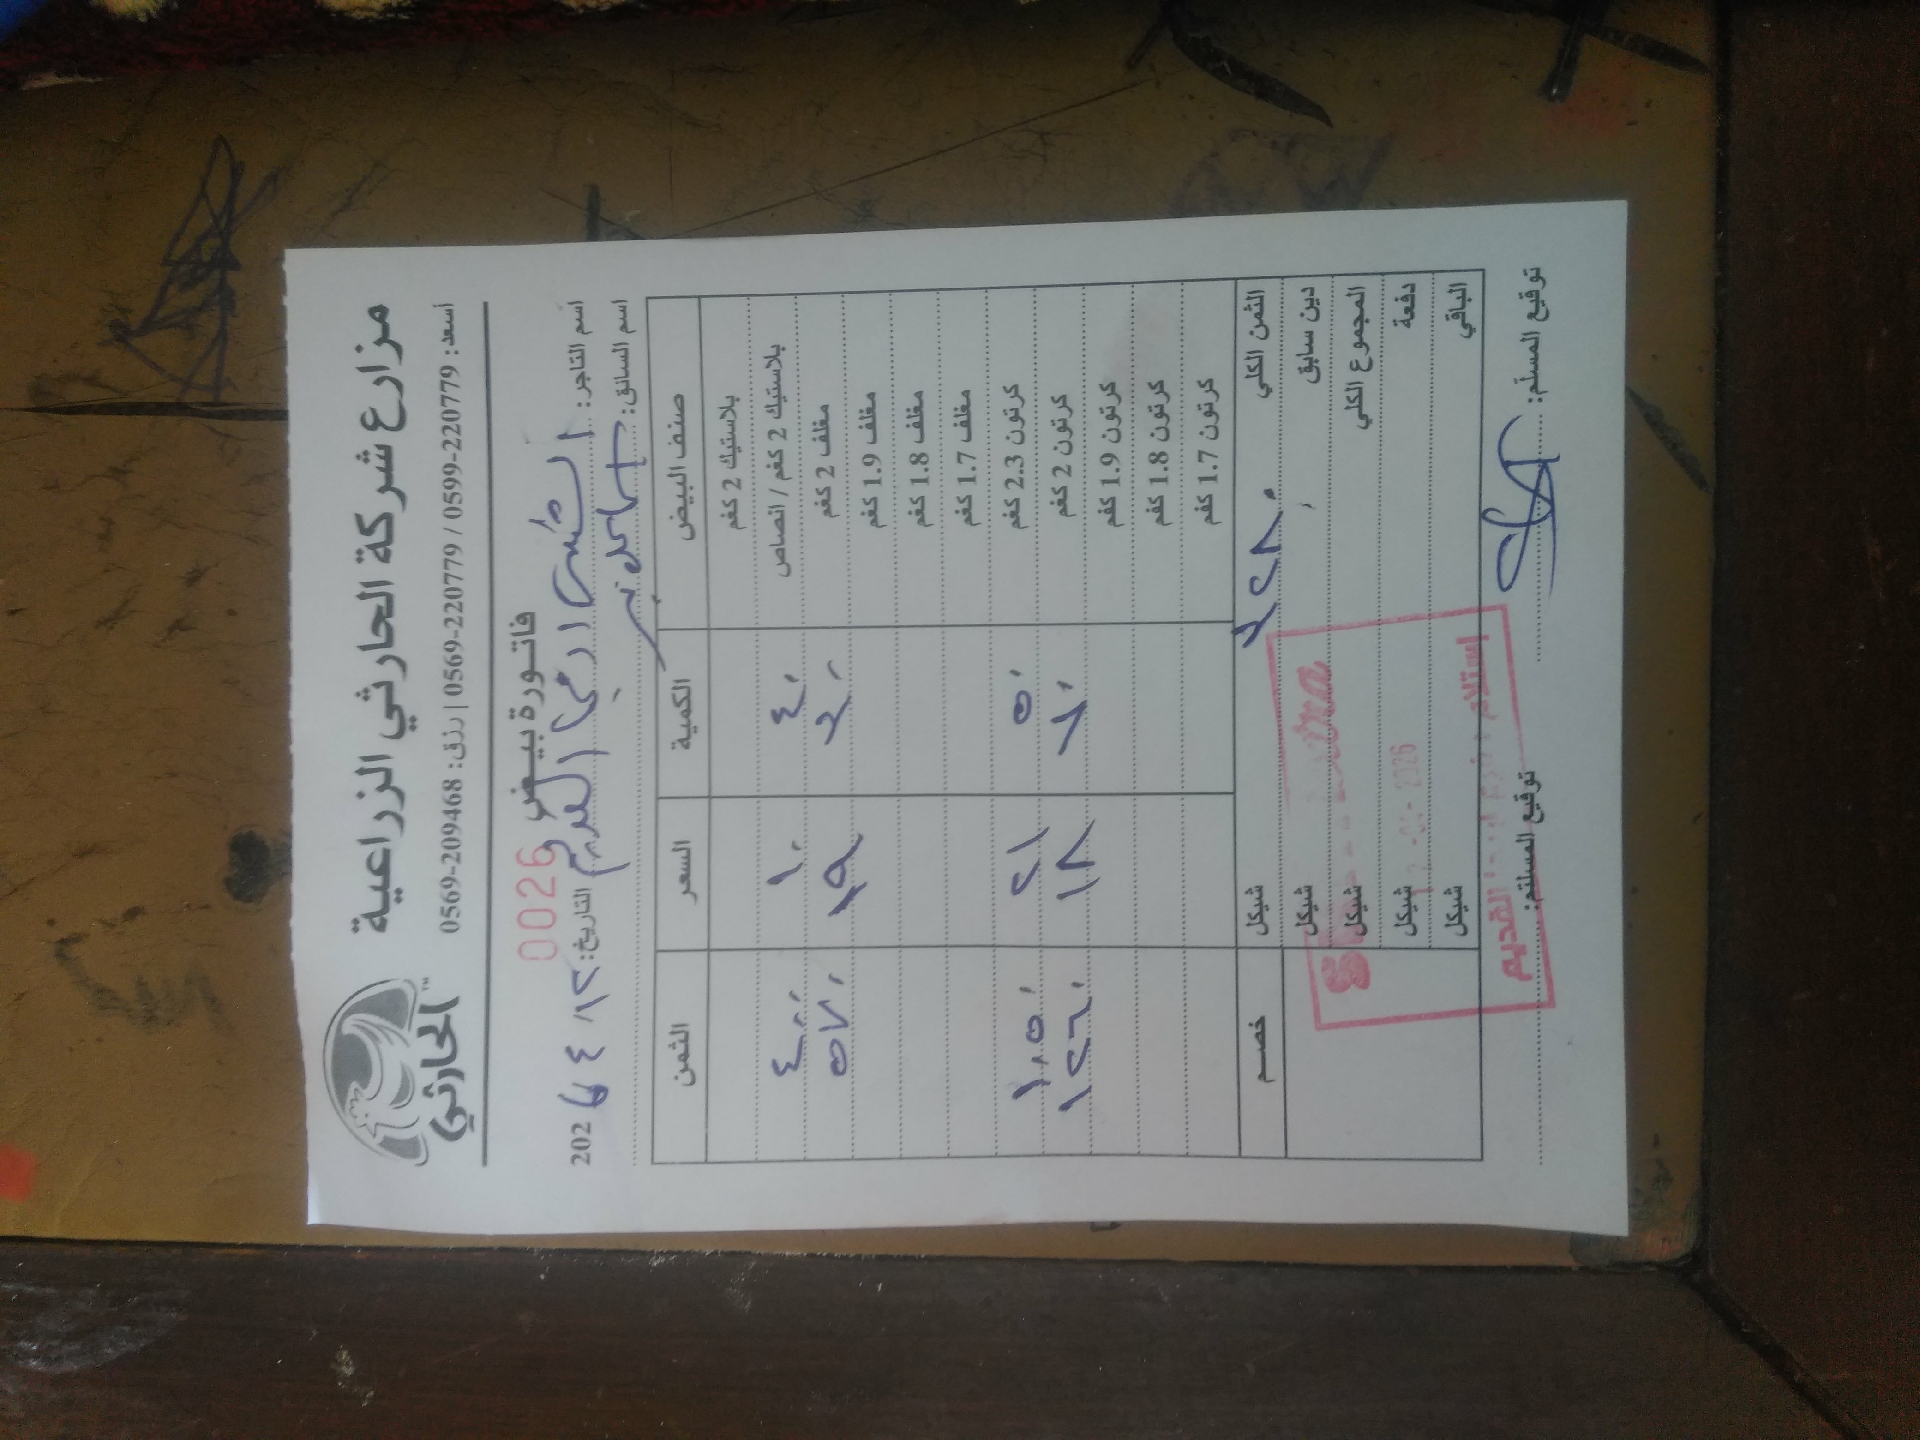 مزارع شركة الحارثي الزراعية
الحارثي
أسعد: 0599-220779 / 0569-220779 | رزق: 0569-209468
فاتورة بيض
0026
اسم التاجر: الشني ارحا القديم
التاريخ: ١٢ / ٤ / 202٦
اسم السائق:
صنف البيض الكمية السعر الثمن
بلاستيك 2 كغم
بلاستيك 2 كغم / انصاص ٤٠ ١٠ ٤٠٠
مغلف 2 كغم ٣٠ ١٩ ٥٧٠
مغلف 1.9 كغم
مغلف 1.8 كغم
مغلف 1.7 كغم
كرتون 2.3 كغم ٥٠ ٢١ ١٠٥٠
كرتون 2 كغم ٧٠ ١٨ ١٢٦٠
كرتون 1.9 كغم
كرتون 1.8 كغم
كرتون 1.7 كغم
الثمن الكلي ٣٢٨٠ شيكل خصم
دين سابق شيكل
المجموع الكلي شيكل
دفعة شيكل
الباقي شيكل
إستلام القديم
توقيع المسلّم: توقيع المستلم: